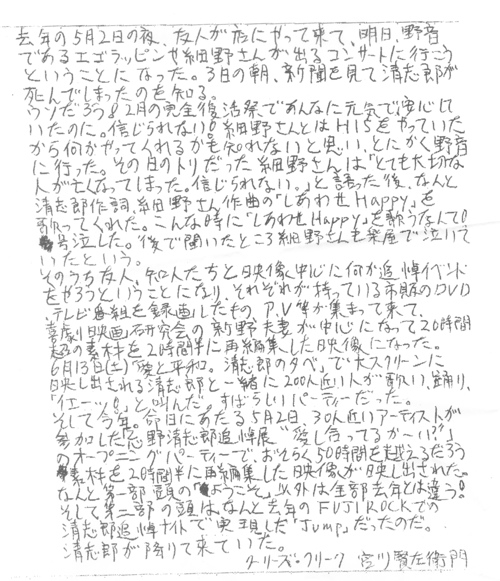 去年の5月2日の夜、友人が家にやって来て、明日、野音
であるエゴラッピンや細野さんが出るコンサートに行こう
ということになった。3日の朝、新聞を見て清志郎が
死んでしまったのを知る。
ウソだろう!2月の完全復活祭であんなに元気で演心して
いたのに。信じられない!細野さんとはHISをやっていた
から何かやってくれるかも知れないと思い、とにかく野音
に行った。その日のトリだった細野さんは「とても大切な
人が亡くなってしまった。信じられない。」と語った後、なんと
清志郎作詞、細野さん作曲の「しあわせHappy」を
歌ってくれた。こんな時に「しあわせHappy」を歌うなんて!
号泣した。後で聞いたところ細野さんも楽屋で泣いて
いたという。
そのうち友人、知人たちと映像中心に何か追悼イベント
をやろうということになり、それぞれが持っている市販のDVD
、テレビ番組を録画したもの A.V等が集まって来て、
喜劇映画研究会の新野夫妻が中心になって20時間
超の素材を2時間半に再編集した映像になった。
6月13日(土)「愛と平和。清志郎の夕べ」で大スクリーンに
映し出される清志郎と一緒に200人近い人が歌い、踊り、
「イエーッ!」と叫んだ。すばらしいパーティーだった。
そして今年。命日にあたる5月2日、30人近いアーティストが
参加した忌野清志郎追悼展“愛し合ってるかーい?”
のオープニングパーティーで、おそらく50時間を越えるだろう
素材を2時間半に再編集した映像が映し出された。
なんと第一部冒頭の「ようこそ」以外は全部去年とは違う!
そして第二部の頭はなんと去年のFUJI ROCKでの
清志郎追悼ナイトで実現した「Jump」だったのだ。
清志郎が降りて来ていた。
クリーズ・クリーク 宮川賢左衛門